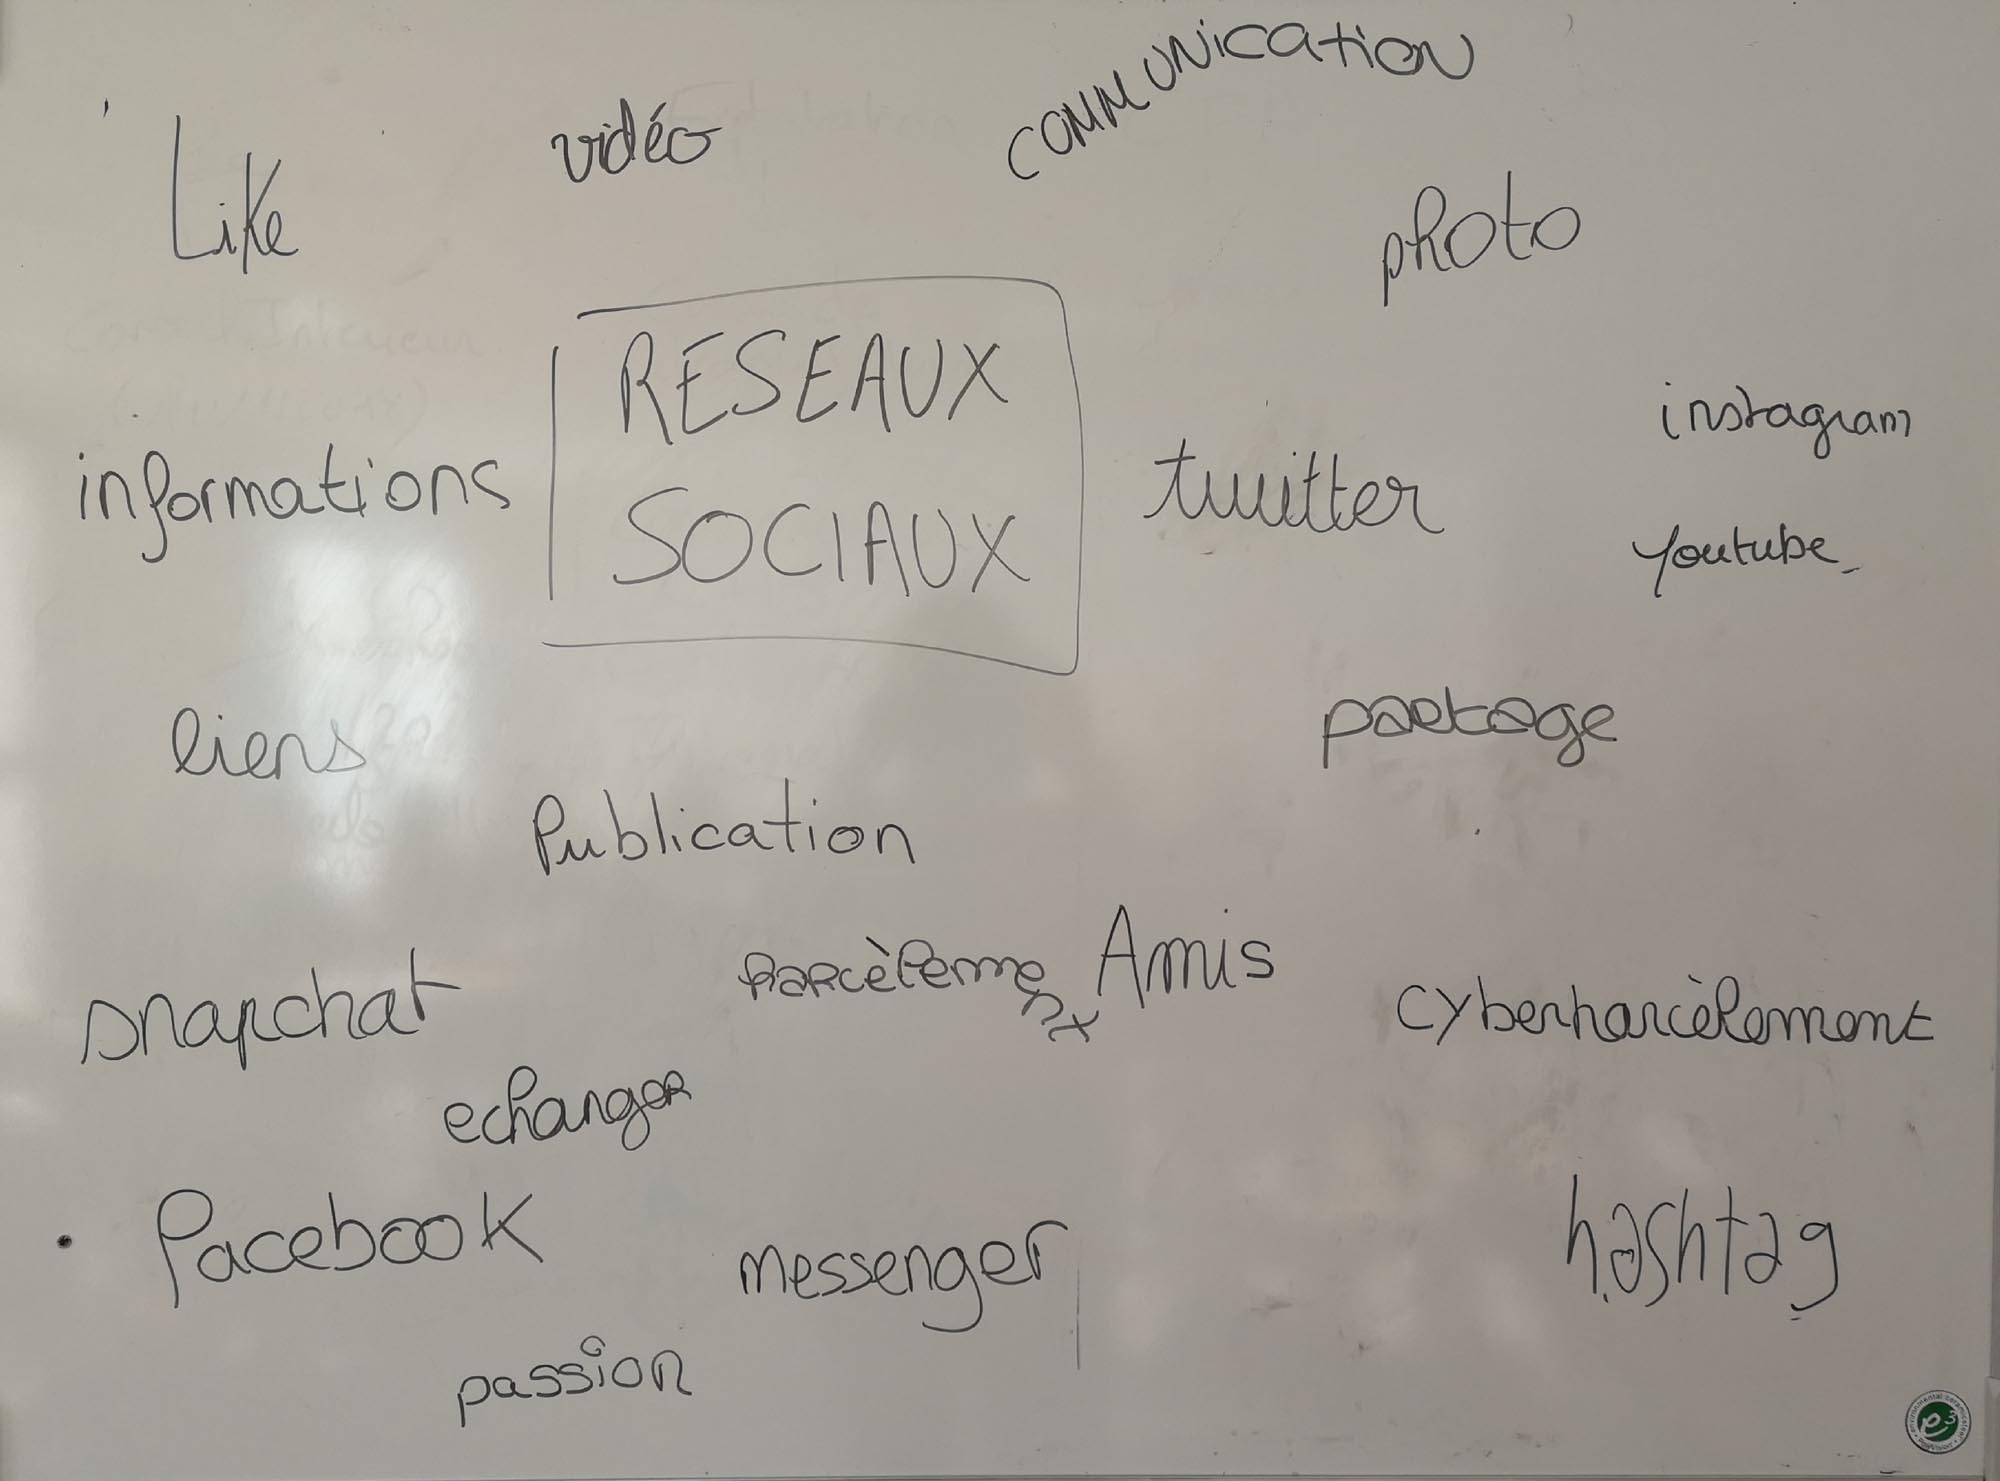 communication
vidéo
Like
photo
RESEAUX
SOCIAUX
instagram
informations
twitter
youtube
liens
partage
Publication
Amis
snapchat
cyberharcèlement
echanger
facebook
messenger
hashtag
passion